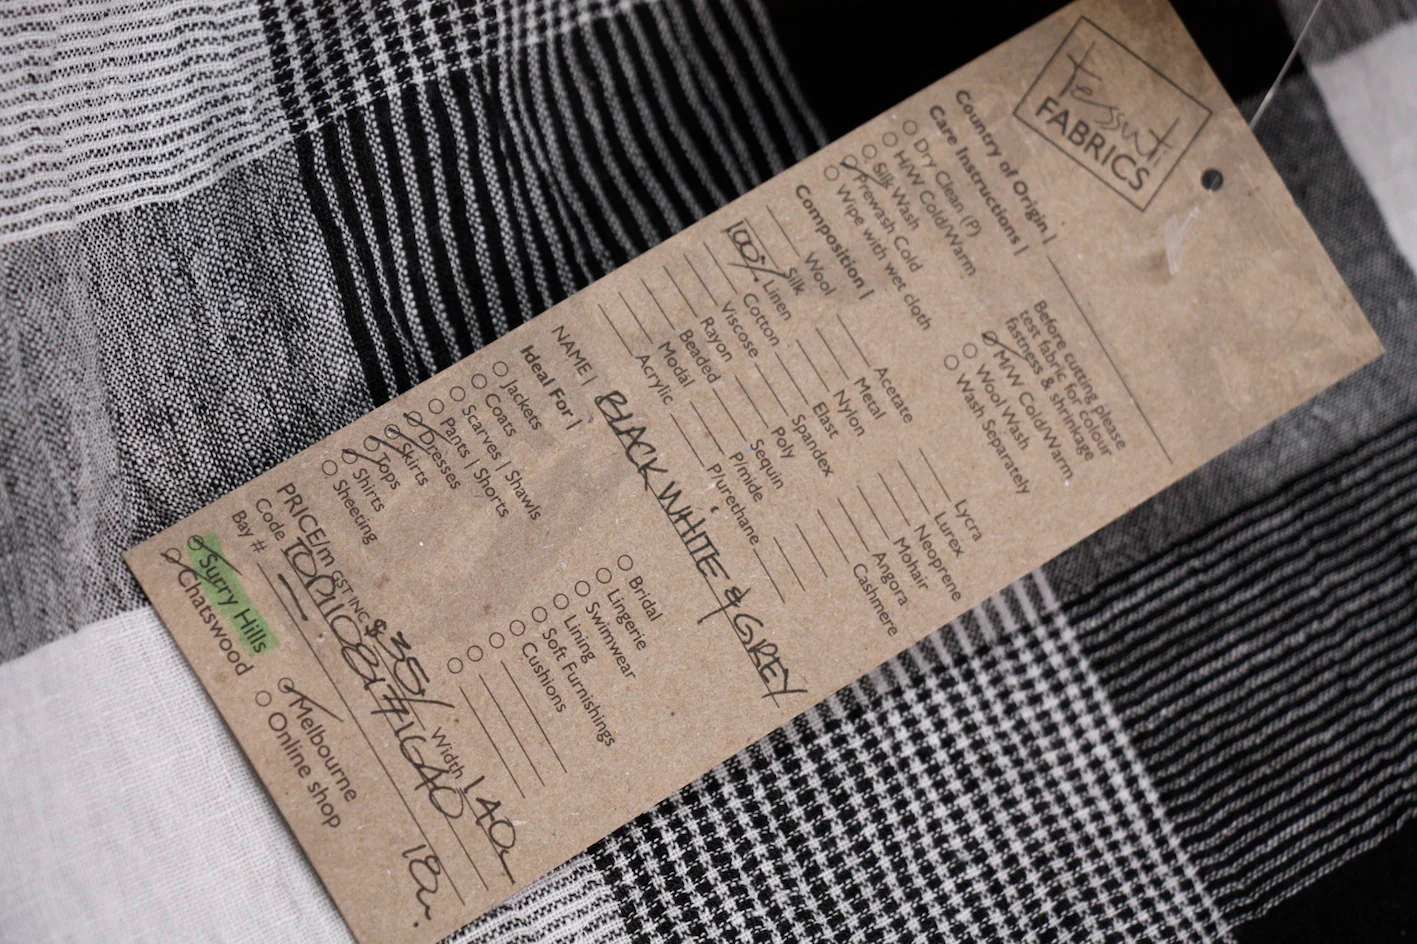 Tessuti
FABRICS
Country of Origin |
Care Instructions |
Dry Clean (P)
H/W Cold/Warm
Silk Wash
Prewash Cold
Wipe with wet cloth
Before cutting please
test fabric for colour
fastness & shrinkage
M/W Cold/Warm
Wool Wash
Wash Separately
Composition |
Wool
Silk
100% Linen
Cotton
Viscose
Rayon
Beaded
Modal
Acrylic
Acetate
Metal
Nylon
Elast
Spandex
Poly
Sequin
P/mide
P/urethane
Lycra
Lurex
Neoprene
Mohair
Angora
Cashmere
NAME | BLACK WHITE & GREY
Ideal For |
Jackets
Coats
Scarves | Shawls
Pants | Shorts
Dresses
Skirts
Tops
Shirts
Sheeting
Bridal
Lingerie
Swimwear
Lining
Soft Furnishings
Cushions
PRICE/m GST INC $35/ Width 140
Code
Bay #
Surry Hills
Chatswood
Melbourne
Online shop